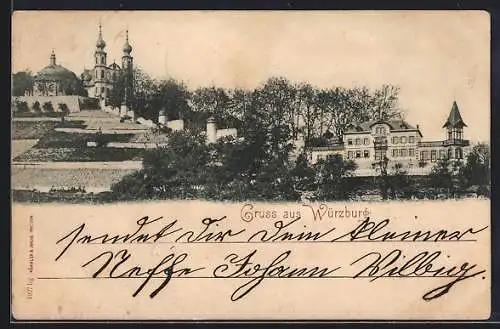 Gruss aus Würzburg
sendet Dir Dein kleiner
Neffe Johann Wilbig.